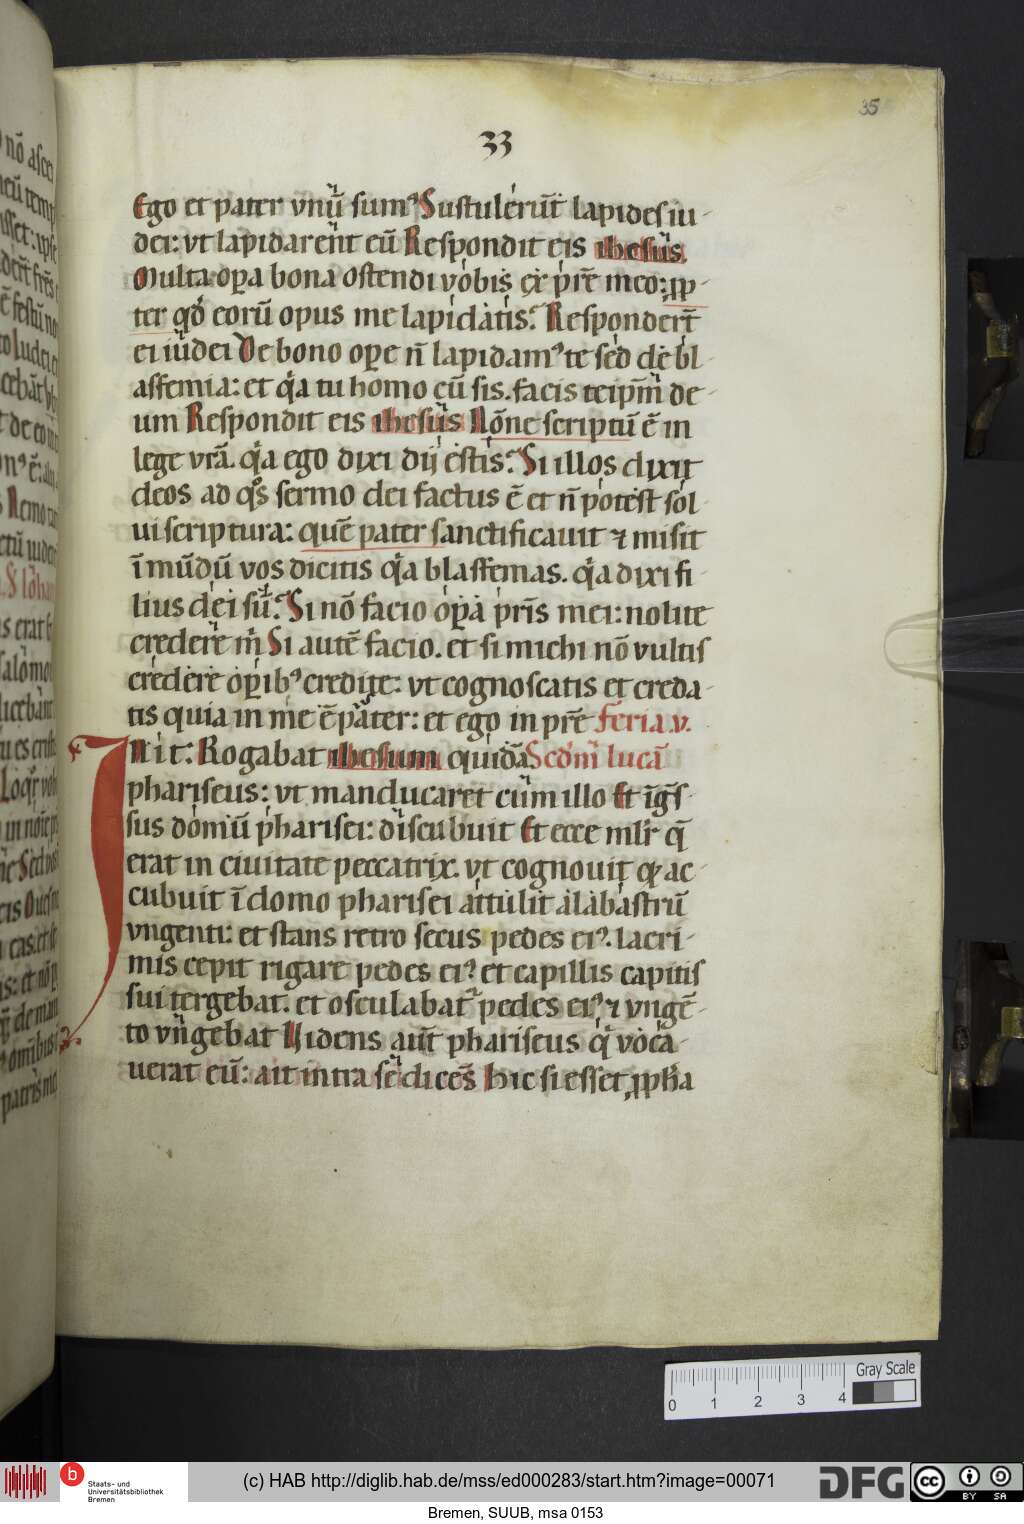 35
33
Ego et pater vnū sumꝰ Sustulerūt lapides iu-
dei: vt lapidarent eū Respondit eis ihesus
Multa oꝑa bona ostendi vobis ex pr̄e meo: ꝓp-
ter qd̛ eorū opus me lapidatis? Responderūt
ei iudei De bono oꝑe n̄ lapidamꝰ te sed de bl-
asfemia: et qͥa tu homo cū sis. facis teip̄m de-
um Respondit eis ihesus Nōne scriptū ē in
lege vrā. qͥa ego dixi dij estis? Si illos dixit
deos ad qͦs sermo dei factus ē et n̄ potest sol-
ui scriptura: quē pater sanctificauit ⁊ misit
ī mūdū vos dicitis qͥa blasfemas. qͥa dixi fi-
lius dei sū? Si nō facio oꝑa pr̄is mei: nolite
credere m̄ Si autē facio. et si michi nō vultis
credere oꝑibꝰ credite: vt cognoscatis et creda-
tis quia in me ē pater: et ego in pr̄e feria .v.
IN it: Rogabat ihesum quidā Scdm̄ lucā
phariseus: vt manducaret cum illo Et īgs̄-
sus domū pharisei: discubuit Et ecce ml̄r q̄
erat in ciuitate peccatrix. vt cognouit ꝙ ac-
cubuit ī domo pharisei attulit alabastrū
vngenti: et stans retro secus pedes eiꝰ. lacri-
mis cepit rigare pedes eiꝰ et capillis capitis
sui tergebat. et osculabat᷑ pedes eiꝰ ⁊ vngē-
to vngebat Uidens aut̄ phariseus qͥ voca-
uerat eū: ait intra se dicēs Hic si esset ꝓph̄a
0 1 2 3 4
Gray Scale
b
Staats- und
Universitätsbibliothek
Bremen
(c) HAB http://diglib.hab.de/mss/ed000283/start.htm?image=00071
DFG
cc BY SA
Bremen, SUUB, msa 0153